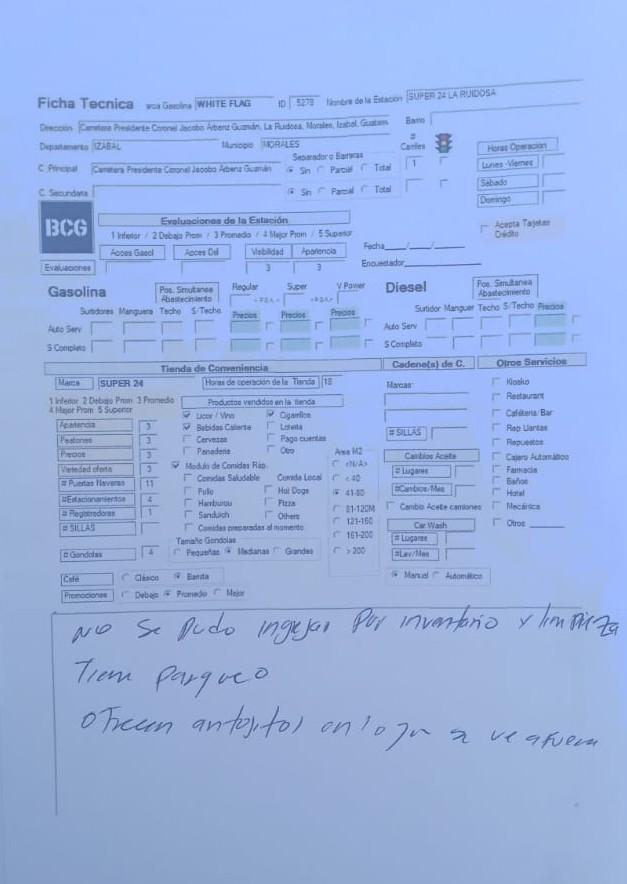 Ficha Tecnica arca Gasolina WHITE FLAG ID 5278 Nombre de la Estación SUPER 24 LA RUIDOSA
Dirección Carretera Presidente Coronel Jacobo Árbenz Guzmán, La Ruidosa, Morales, Izabal, Guatem Barrio
Departamento IZABAL Municipio MORALES # Carriles Horas Operacion
Separador o Barreras
C. Principal Carretera Presidente Coronel Jacobo Árbenz Guzmán Sin Parcial Total 1 Lunes -Viernes
C. Secundaria Sin Parcial Total Sábado
Domingo
BCG Evaluaciones de la Estación Acepta Tarjetas Crédito
1 Inferior / 2 Debajo Prom / 3 Promedio / 4 Mejor Prom / 5 Superior
Acces Gasol Acces Dsl Visibilidad Apariencia Fecha___/___/___
Evaluaciones 3 3 Encuestador
Gasolina Pos. Simultanea Abastecimiento Regular Super V Power Diesel Pos. Simultanea Abastecimiento
Surtidores Manguera Techo S/Techo Precios Precios Precios Surtidor Manguer Techo S/Techo Precios
Auto Serv Auto Serv
S Completo S Completo
Tienda de Conveniencia Cadene(s) de C. Otros Servicios
Marca SUPER 24 Horas de operación de la Tienda 18 Marcas: Kiosko
1 Inferior 2 Debajo Prom 3 Promedio Productos vendidos en la tienda Restaurant
4 Mejor Prom 5 Superior Licor / Vino Cigarrillos Caféteria/Bar
Apariencia 3 Bebidas Caliente Loteria # SILLAS Rep Llantas
Peatones 3 Cervezas Pago cuentas Repuestos
Precios 3 Panaderia Otro Area M2 Cambios Aceite Cajero Automático
Variedad oferta 3 Modulo de Comidas Rap. <N/A> # Lugares Farmacia
# Puertas Neveras 11 Comidas Saludable Comida Local < 40 #Cambios/Mes Baños
#Estacionamientos 4 Pollo Hot Dogs 41-80 Hotel
# Registradores 1 Hamburou Pizza 81-120M Cambio Aceite camiones Mecánica
# SILLAS Sanduich Others 121-160 Car Wash Otros
Comidas preparadas al momento 161-200 # Lugares
Tamaño Gondolas
# Gondolas 4 Pequeñas Medianas Grandes > 200 #Lav/Mes
Café Clásico Barista Manual Automático
Promociones Debajo Promedio Mejor
No se pudo ingresar por inventario y limpieza
Tienen parqueo
Ofrecen antojitos en lo que se ve afuera